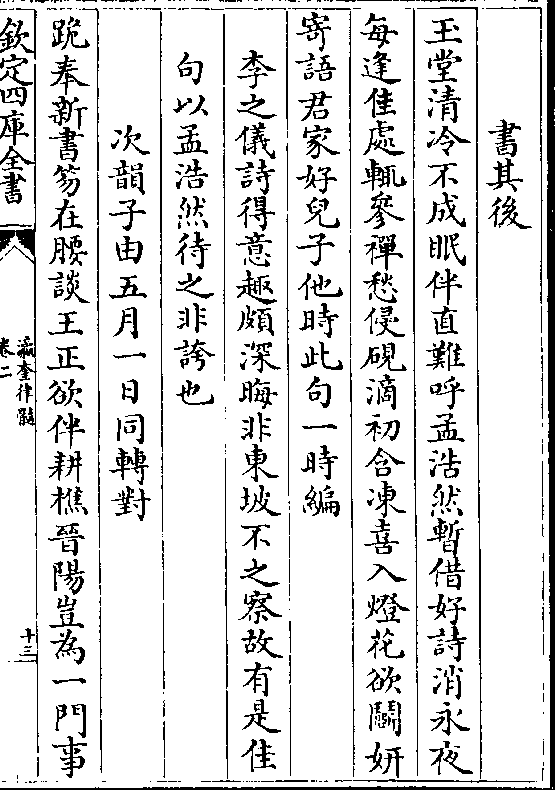 書其後
玉堂清冷不成眠伴直難呼孟浩然暫借好詩消永夜
每逢佳處輒參禪愁侵硯滴初含凍喜入燈花欲鬭妍
寄語君家好兒子他時此句一時編
李之儀詩得意趣頗深晦非東坡不之察故有是佳
句以孟浩然待之非誇也
次韻子由五月一日同轉對
跪奉新書笏在腰談王正欲伴耕樵晉陽豈為一門事
欽定四庫全書
瀛奎律髓
卷二
十三